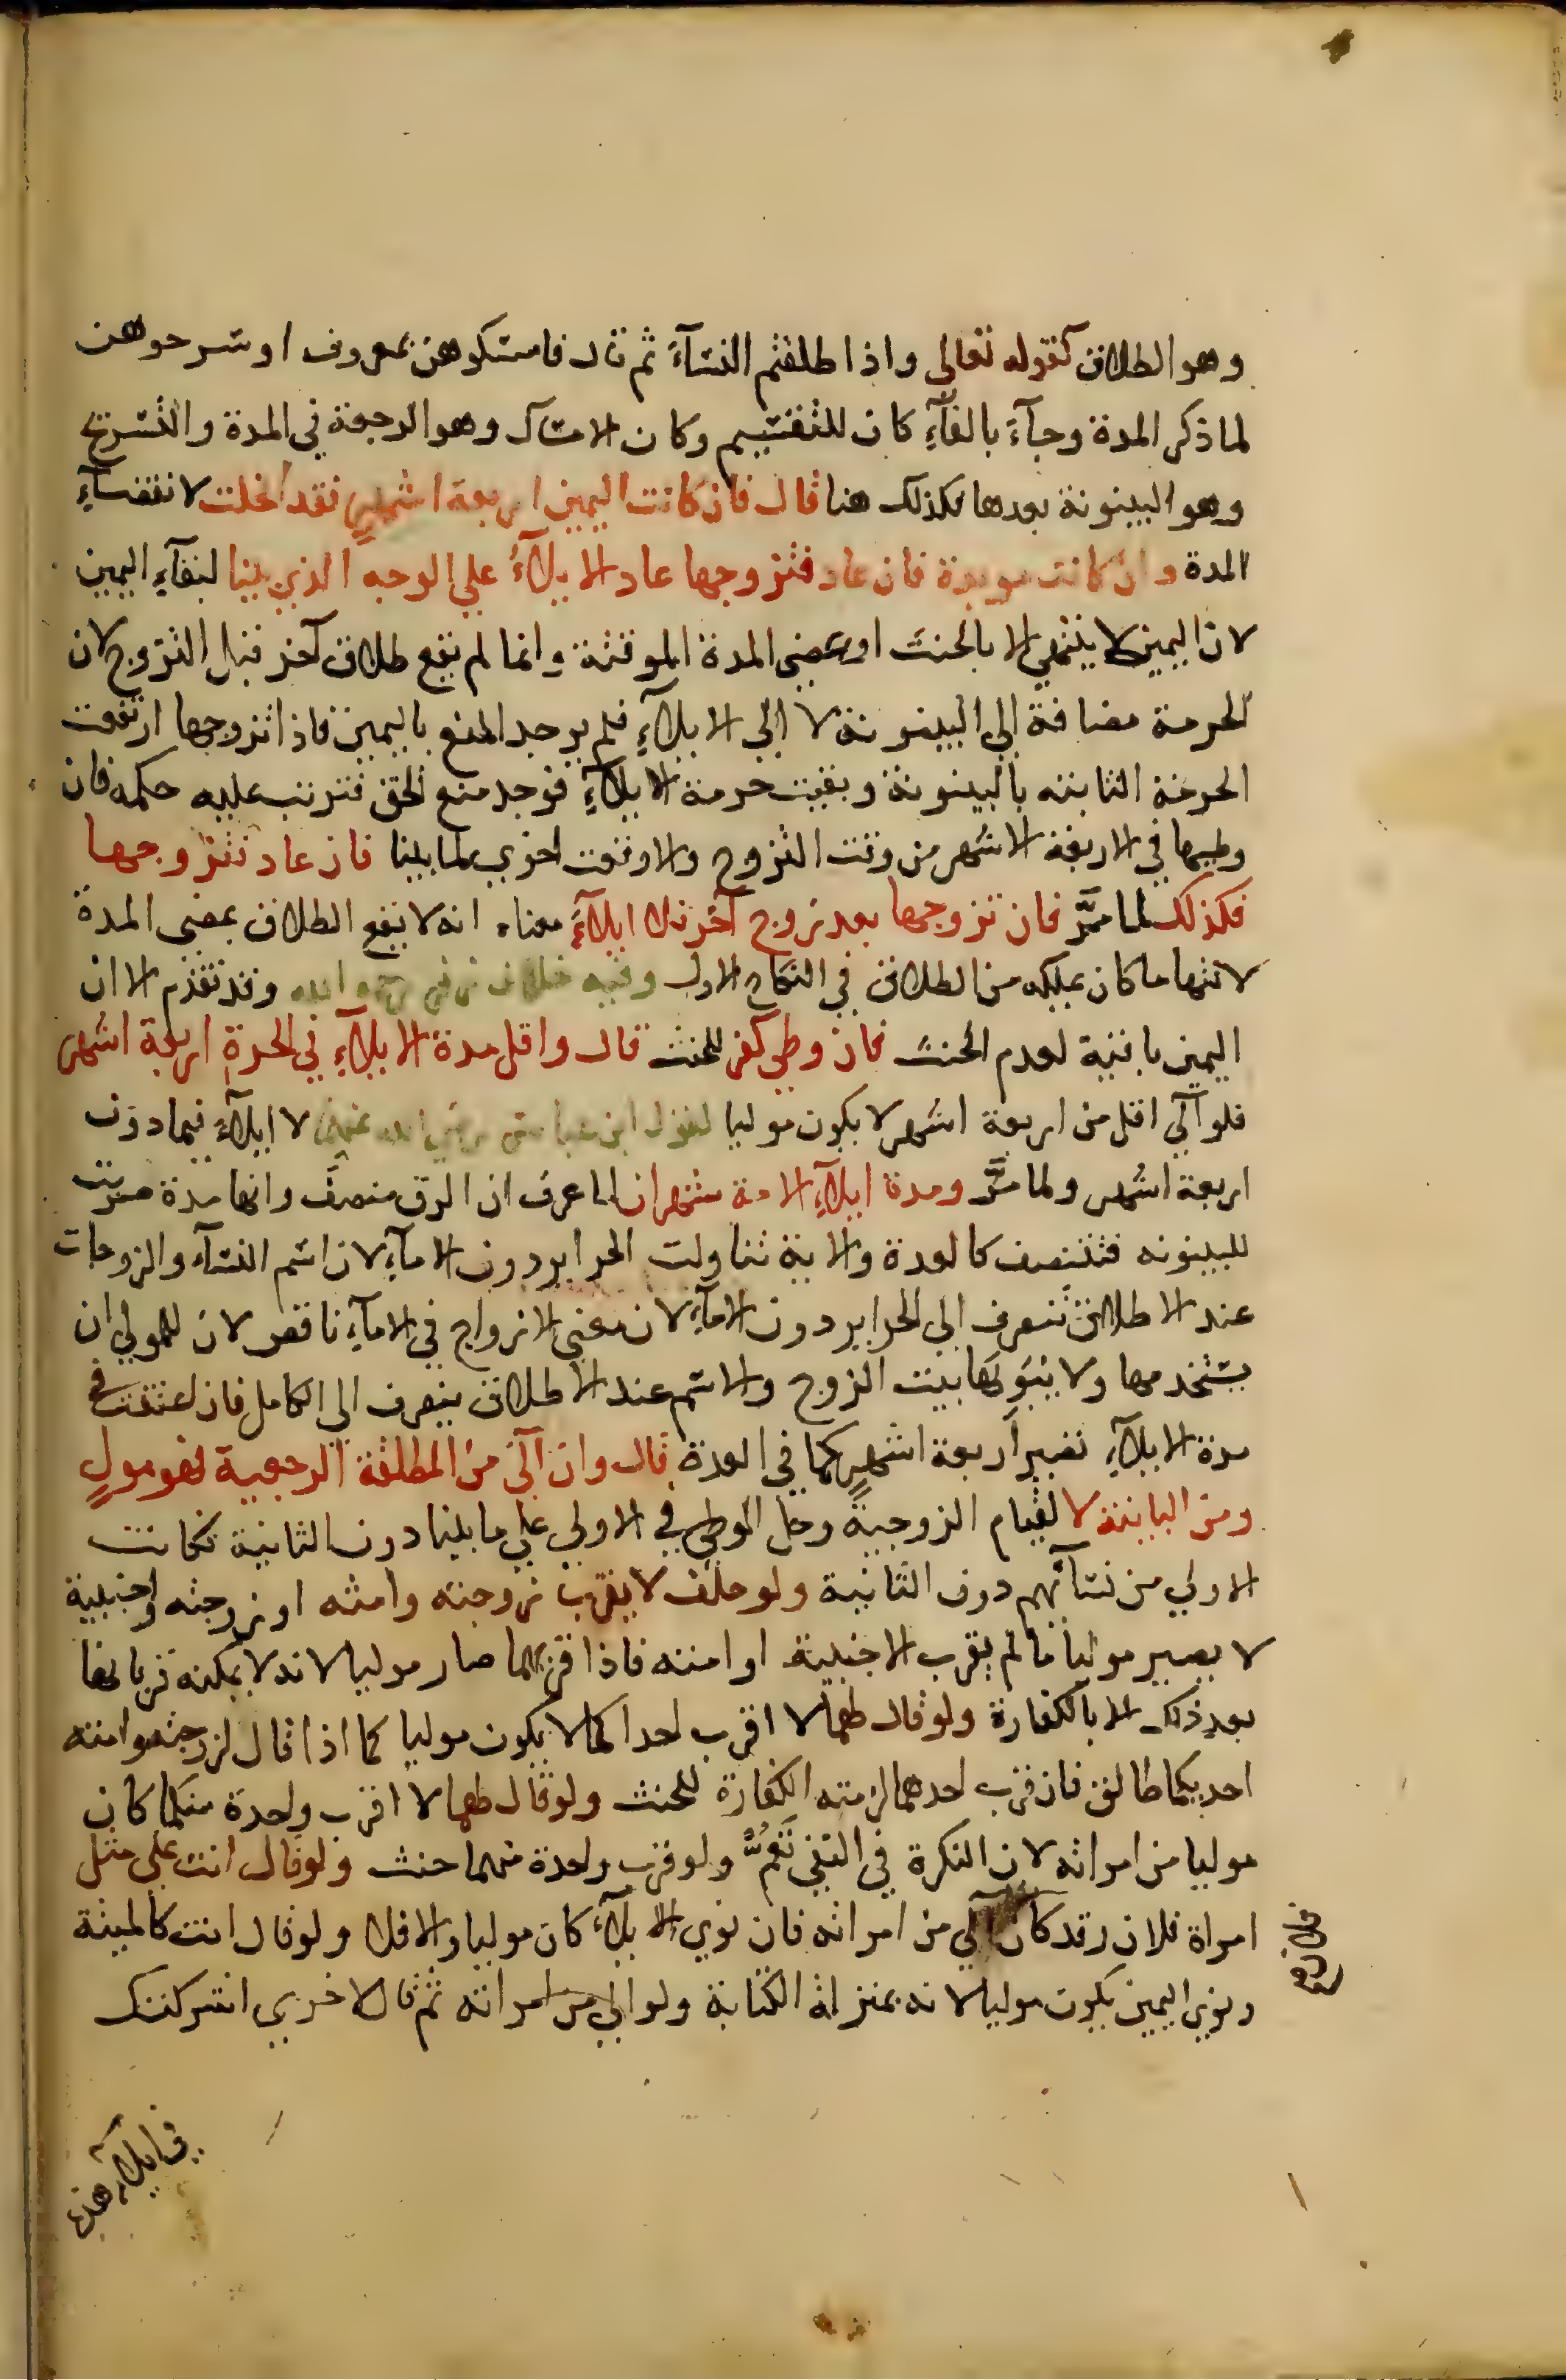 وهو الطلاق كقوله تعالى واذا طلقتم النسآء ثم قال فامسكوهن بمعروف او سرحوهن
لما ذكر المدة وجآء بالفآء كان للتقسيم وكان الامساك وهو الرجعة في المدة والتسريح
وهو البينونة بعدها فكذلك هنا قال فان كانت اليمين اربعة اشهر فقد انحلت لانقضآء
المدة وان كانت موبدة فان عاد فتزوجها عاد الايلآء علي الوجه الذي بينا لبقآء اليمين
لان اليمين لا ينتهي الا بالحنث او بمضي المدة الموقتة وانما لم يقع طلاق آخر قبل التزوج لان
الحرمة مضافة الي البينونة لا الي الايلآء فلم يوجد المنع باليمين فاذا تزوجها ارتفعت
الحرمة الثابته بالبينونة وبقيت حرمة الايلآء فوجد منع الحق فترتب عليه حكمه فان
وطيها في الاربعة الاشهر من وقت التزوج والا وقعت اخري لما بينا فان عاد فتزوجها
فكذلك لما مرّ فان تزوجها بعد زوج آخر فلا ايلآء معناه انه لا يقع الطلاق بمضي المدة
لانتها ما كان يملكه من الطلاق في النكاح الاول وفيه خلاف زفر وقد تقدم الا ان
اليمين باقية لعدم الحنث فان وطي كفر للحنث قال واقل مدة الايلآء في الحرة اربعة اشهر
فلو آلي اقل من اربعة اشهر لا يكون موليا لقول ابن عباس رضي الله عنهما لا ايلآء فيما دون
اربعة اشهر ولما مرّ ومدة ايلآء الامة شهران لما عرف ان الرق منصف وانها مدة ضربت
للبينونه فتتنصف كالعدة والاية تناولت الحراير دون الامآء لان اسم النسآء والزوجات
عند الاطلاق تنصرف الي الحراير دون الامآء لان معني الازواج في الامآء ناقص لان للمولي ان
يستخدمها ولا يبوئها بيت الزوج والاسم عند الاطلاق ينصرف الي الكامل فان اعتقت في
مدة الايلآء تصير اربعة اشهر كما في العدة قال وان آلي من المطلقة الرجعية فهو مولٍ
ومن الباينة لا لقيام الزوجية وحل الوطي في الاولي علي ما بينا دون الثانية فكانت
الاولي من نسآئهم دون الثانية ولو حلف لا يقرب زوجته وامته او زوجته واجنبية
لا يصير موليا ما لم يقرب الاجنبية او امته فاذا قربهما صار موليا لانه لا يمكنه قربانها
بعد ذلك الا بالكفارة ولو قال لهما لا اقرب احداكما لا يكون موليا كما اذا قال لزوجته وامته
احديكما طالق فان قرب احدهما لزمته الكفارة للحنث ولو قال لهما لا اقرب واحدة منكما كان
موليا من امراته لان النكرة في النفي تَعُمُّ ولو قرب واحدة منهما حنث ولو قال انت علي مثل
امراة فلان وقد كان آلي من امراته فان نوي الايلآء كان موليا والا فلا ولو قال انت كالميتة
ونوي اليمين يكون موليا لانه بمنزلة الكناية ولو الي من امراته ثم قال لاخري اشركتك
في ايلآء هذه